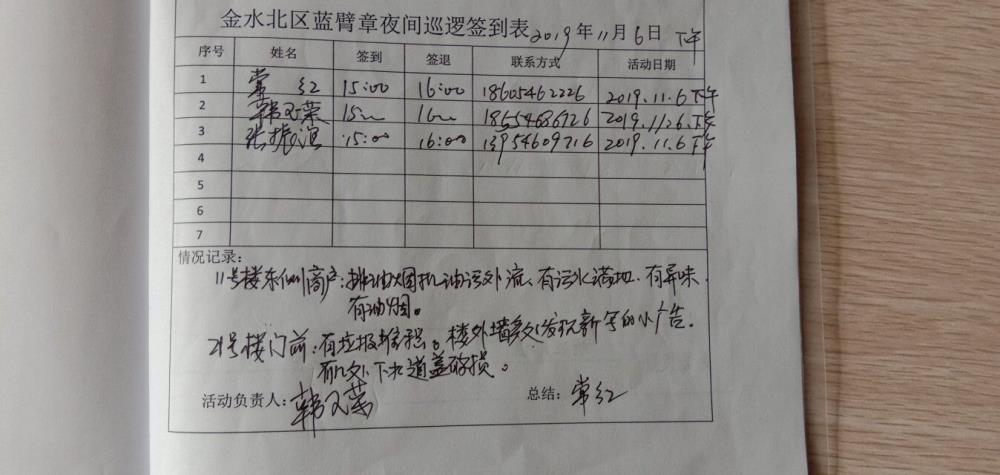 金水北区蓝臂章夜间巡逻签到表 2019年11月6日 下午
序号 姓名 签到 签退 联系方式 活动日期
1 常红 15:00 16:00 18605462226 2019.11.6下午
2 韩又荣 15〃 16〃 18554686726 2019.11.6.下午
3 张振谊 15:00 16:00 13954609716 2019.11.6下午
4
5
6
7
情况记录:
11号楼东侧商户:排油烟机油污外流、有污水满地.有异味.
有油烟。
21号楼门前:有垃圾堆积。楼外墙多处发现新写的小广告.
有几处下水道盖破损。
活动负责人:韩又荣 总结:常红